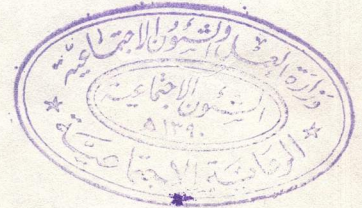 وزارة العمل والشئون الاجتماعية
الشئون الاجتماعية
١٣٩٠ ه
الرعاية الاجتماعية